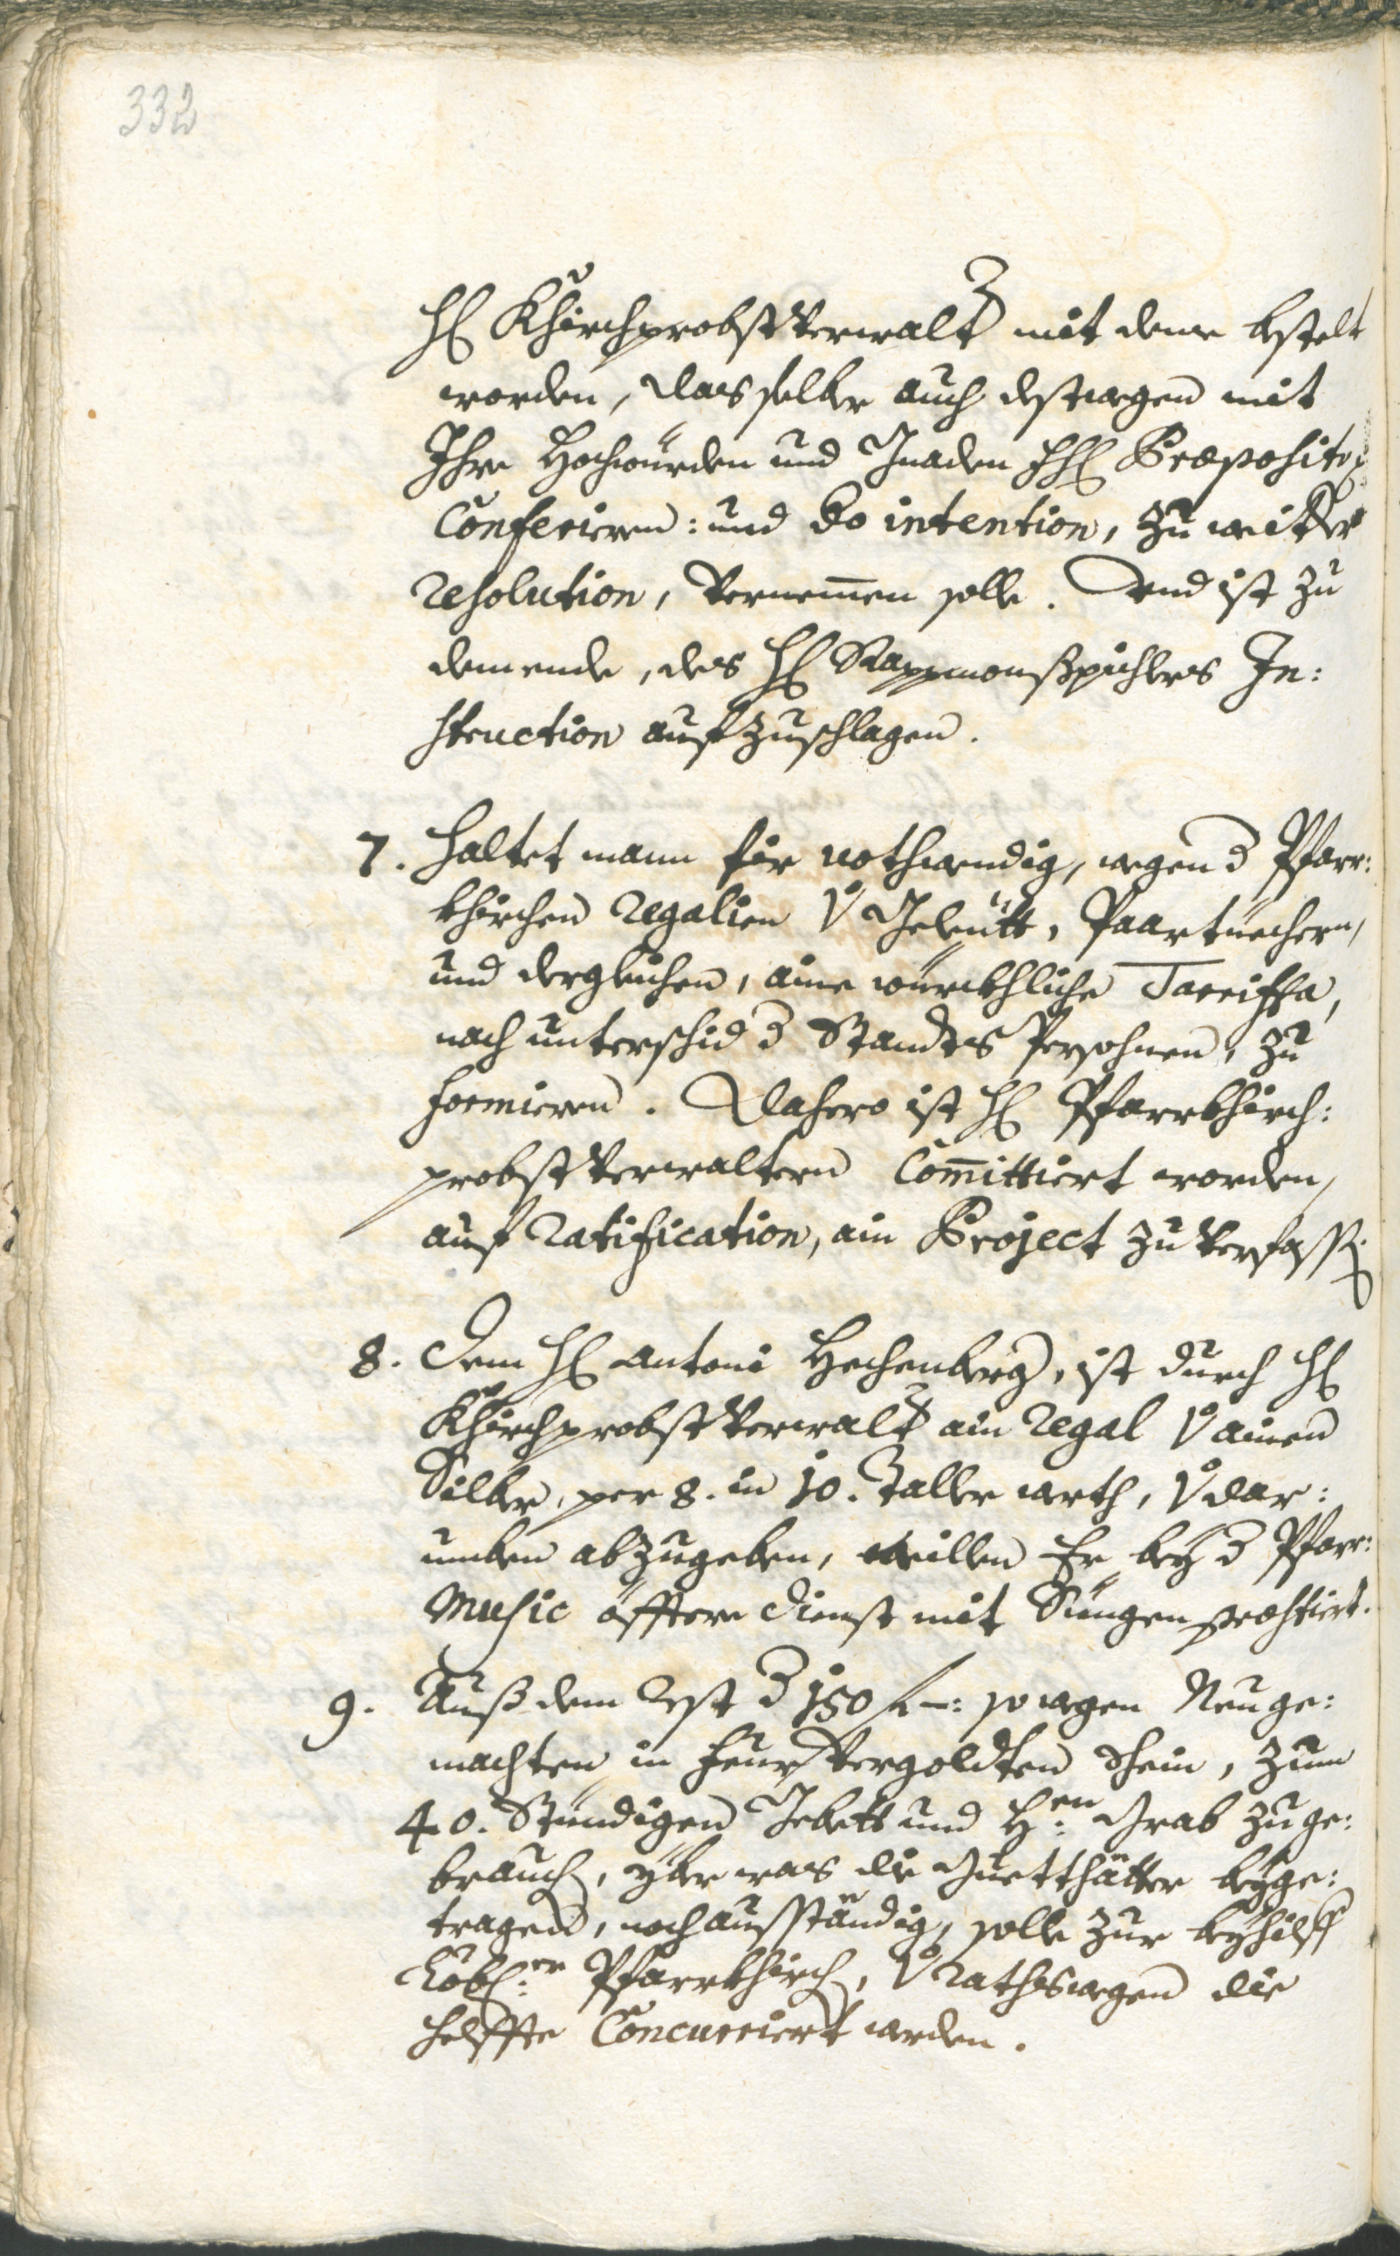 332
H Khirchprobst Verwalt mit deme bstelt
worden, das selber auch destwegen mit
Ihre Hochwürden und Gnaden HH Præposito
Conferiren: und do intention, zu weitter
resolution, Vernemen solle. Und ist zu
dem ende, des H Rappmonßpichlers In:
struction auf zuschlagen.
7. Haltet mann für nothwendig, wegen d Pfarr:
khirchen Regalien V Geleütt, Paartuechern,
und dergleichen, aine würckhliche Tariffa,
nach unterschid d Standts Persohnen, zu
formieren. Dahero ist H Pfarrkhirch:
probst Verwaltern Comittiert worden,
auf Ratification, ain Project zu Verfassn
8. Dem H Antoni Hechenberg, ist durch H
Khirchprobst Verwalt ain Regal V ainen
Silber, per 8. in 10. Taller werth, V dar:
umben abzugeben, weillen Er bey d Pfarr:
Music öfftere dienst mit Singen præstiert.
9. Auß dem Rest d 150 f –: so wegen Neu ge:
machten in feur Vergoldten Schein, zum
40. Stündigen Gebett und H:en Grab zu ge:
brauch, yber was die Guetthätter beyge:
tragen, noch ausständig, solle zur beyhilff
Löbl:er Pfarrkhirch, V Raths wegen die
helffte Concurriert werden.